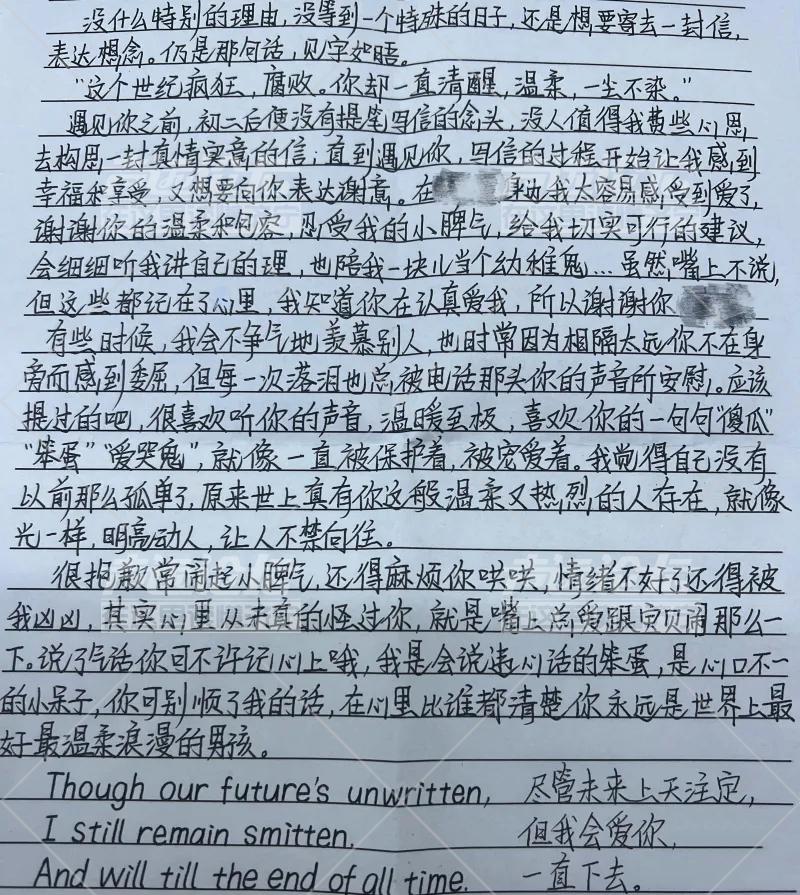 没什么特别的理由，没等到一个特殊的日子，还是想要寄去一封信，
表达想念。仍是那句话，见字如晤。
“这个世纪疯狂，腐败。你却一直清醒，温柔，一尘不染。”
遇见你之前，初二后便没有提笔写信的念头，没人值得我费些心思
去构思一封真情实意的信；直到遇见你，写信的过程开始让我感到
幸福和享受，又想要向你表达谢意。在 身边我太容易感受到爱了，
谢谢你的温柔和包容，忍受我的小脾气，给我切实可行的建议，
会细细听我讲自己的理，也陪我一块儿当个幼稚鬼…虽然嘴上不说，
但这些都记在了心里，我知道你在认真爱我，所以谢谢你
有些时候，我会不争气地羡慕别人，也时常因为相隔太远你不在身
旁而感到委屈，但每一次落泪也总被电话那头你的声音所安慰。应该
提过的吧，很喜欢听你的声音，温暖至极，喜欢你的一句句“傻瓜”
“笨蛋”“爱哭鬼”，就像一直被保护着，被宠爱着。我觉得自己没有
以前那么孤单了，原来世上真有你这般温柔又热烈的人存在，就像
光一样，明亮动人，让人不禁向往。
很抱歉常闹起小脾气，还得麻烦你哄哄，情绪不好了还得被
我凶凶，其实心里从未真的怪过你，就是嘴上总爱跟宝贝闹那么一
下。说了气话你可不许记心上哦，我是会说违心话的笨蛋，是心口不一
的小呆子，你可别顺了我的话，在心里比谁都清楚你永远是世界上最
好最温柔浪漫的男孩。
Though our future's unwritten, 尽管未来上天注定，
I still remain smitten, 但我会爱你，
And will till the end of all time. 一直下去。